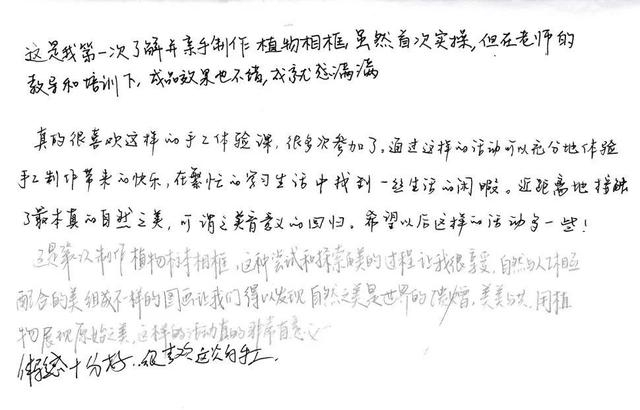 这是我第一次了解并亲手制作植物相框,虽然首次实操,但在老师的
教导和培训下,成品效果也不错,成就感满满
真的很喜欢这样的手工体验课,很多次参加了。通过这样的活动可以充分地体验
手工制作带来的快乐,在繁忙的学习生活中找到一丝生活的闲暇。近距离地接触
了最本真的自然之美,可谓之美育意义的回归。希望以后这样的活动多一些!
这是第一次制作植物标本相框,这种尝试和探索美的过程让我很享受,自然与人相互
配合的美组成不一样的图画让我们得以发现自然之美是世界的馈赠,美美与共,用植
物展现原始之美,这样的活动真的非常有意义
体验感十分好,很喜欢这次的手工